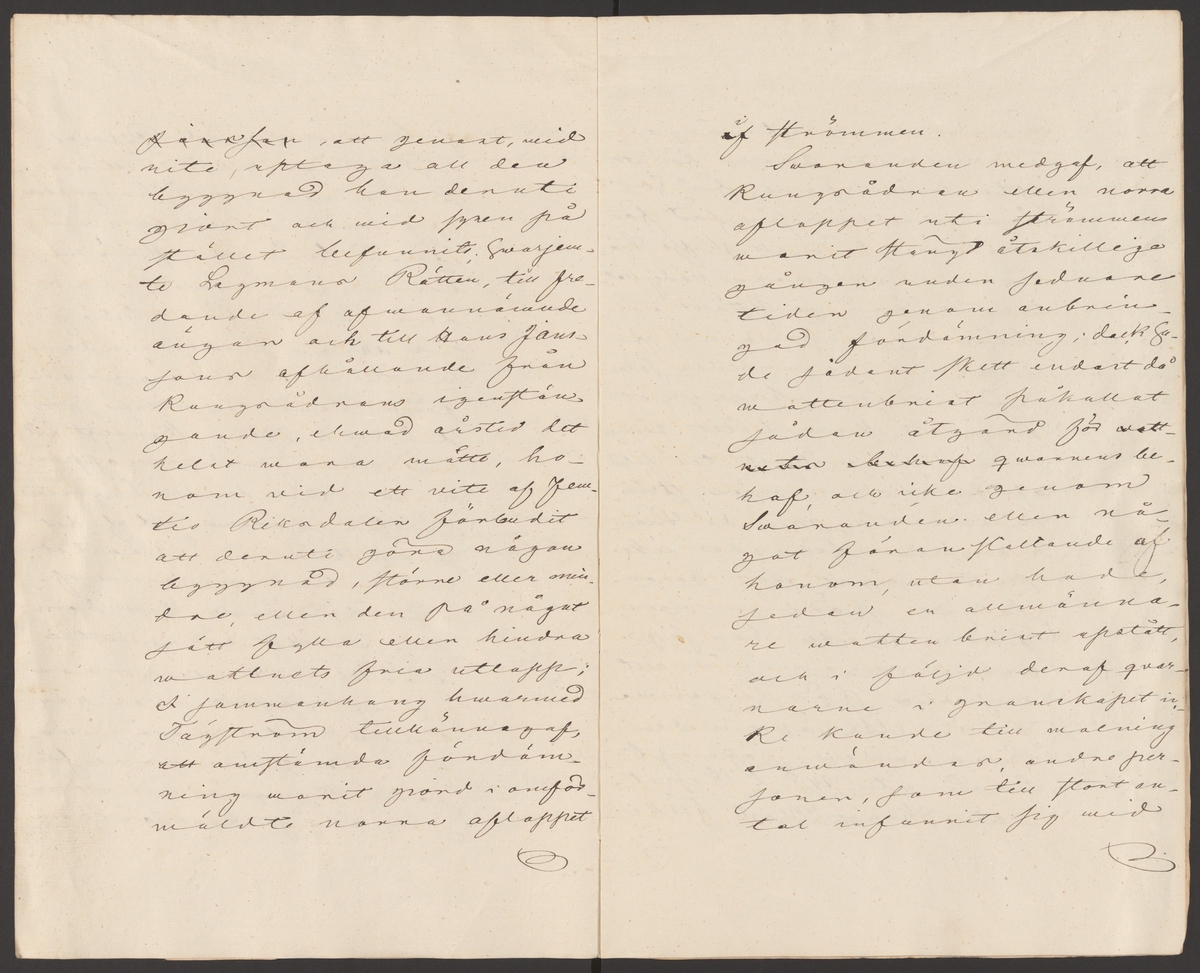 , att genast, wid
vite, uptaga all den
byggnad han deruti
giort och wid synen på
stället befunnits. Hwarjem-
te Lagmans Rätten, till fre-
dande af ofwannämnde
ängar och till Hans Jans-
sons afhållande från
Kungsådrans igenstän-
gande, ehwad årstid det
helst wara måtte, ho-
nom vid ett vite af Fem-
tio Riksdaler förbudit
att deruti göra någon
byggnad, större eller min-
dre, eller den på något
sätt fylla eller hindra
wattnets fria utlopp;
I sammanhang hwarmed
Tägström tillkännagaf,
att omstämda fördäm-
ning warit giord i omför-
mäldte norra afloppet
af strömmen.
Swaranden medgaf, att
Kungsådran eller norra
afloppet uti strömmen
warit stängd åtskillige
gånger under sednare
tiden genom anbrin-
gad fördämning; dock ha-
de sådant skett endast då
wattenbrist påkallat
sådan åtgärd för watt-
nets behof qwarnens be-
hof, och icke genom
Swaranden eller nå-
got föranstaltande af
honom, utan hade,
sedan en allmänna-
re wattenbrist upstått,
och i följd deraf qwar-
narne i granskapet ic-
ke kunde till malning
användas, andre per-
soner, som till stort an-
tal infunnit sig wid